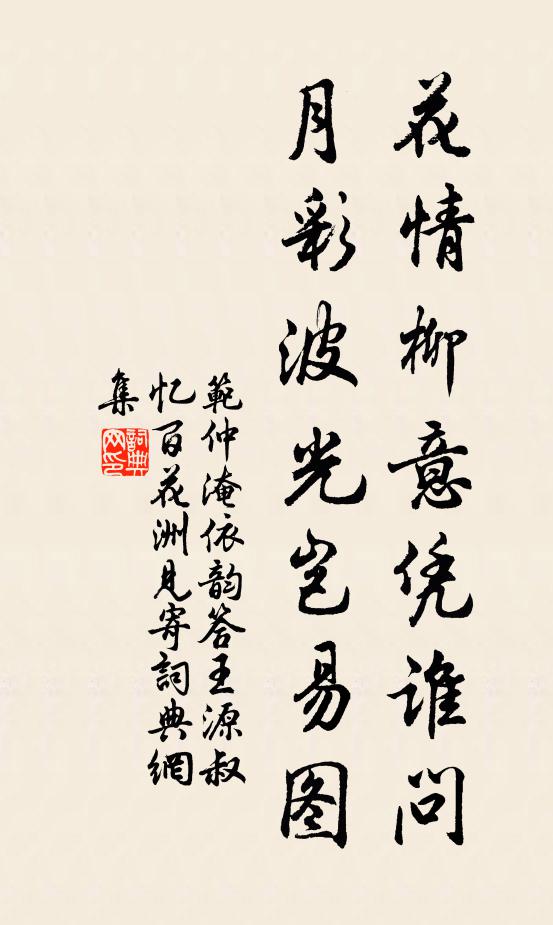 花情柳意凭谁问
月彩波光岂易图
範仲淹依韵答王源叔
忆百花洲见寄詞典網
集
詞典
网印